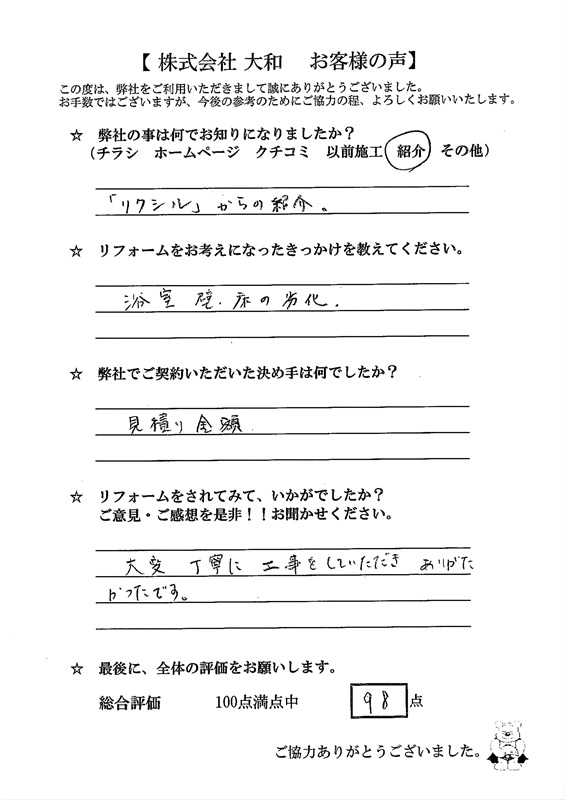 【 株式会社 大和　お客様の声】
この度は、弊社をご利用いただきまして誠にありがとうございました。
お手数ではございますが、今後の参考のためにご協力の程、よろしくお願いいたします。
☆ 弊社の事は何でお知りになりましたか？
（チラシ　ホームページ　クチコミ　以前施工　紹介　その他）
「リクシル」からの紹介。
☆ リフォームをお考えになったきっかけを教えてください。
浴室 壁、床の劣化．
☆ 弊社でご契約いただいた決め手は何でしたか？
見積り金額
☆ リフォームをされてみて、いかがでしたか？
ご意見・ご感想を是非！！お聞かせください。
大変 丁寧に 工事をしていただき ありがた
かったです。
☆ 最後に、全体の評価をお願いします。
総合評価　100点満点中　98 点
ご協力ありがとうございました。